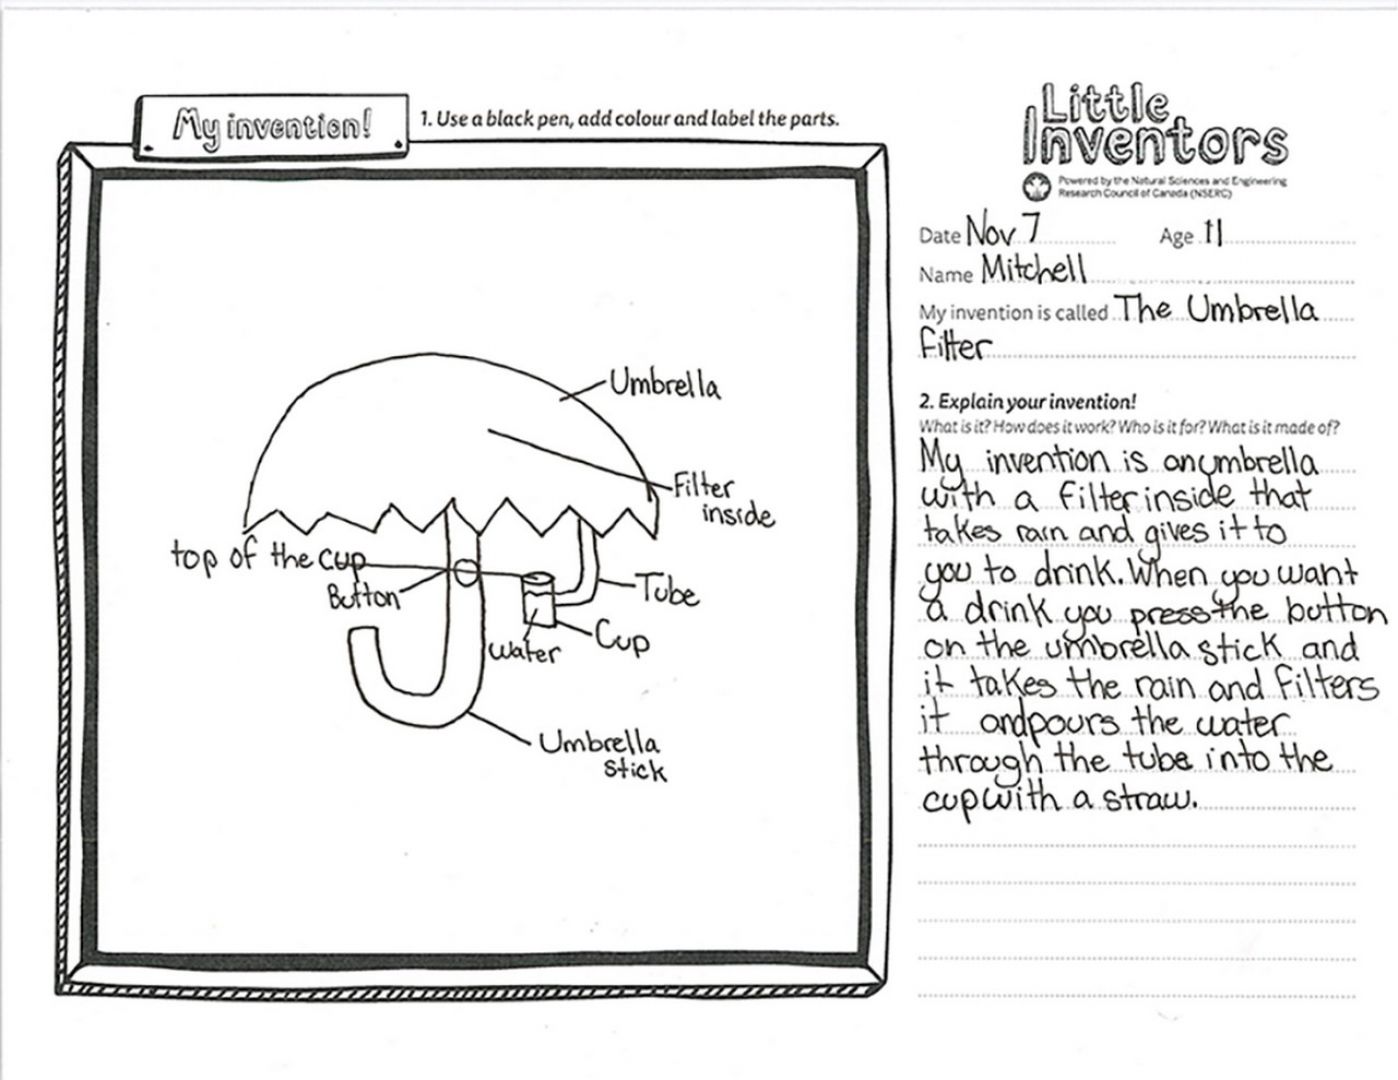 My invention!
1. Use a black pen, add colour and label the parts.
Little
Inventors
Powered by the Natural Sciences and Engineering
Research Council of Canada (NSERC)
Date Nov 7 Age 11
Name Mitchell
My invention is called The Umbrella
Filter
2. Explain your invention!
What is it? How does it work? Who is it for? What is it made of?
My invention is an umbrella
with a filter inside that
takes rain and gives it to
you to drink. When you want
a drink you press the button
on the umbrella stick and
it takes the rain and filters
it and pours the water
through the tube into the
cup with a straw.
Umbrella
Filter
inside
top of the cup
Button
Tube
Cup
water
Umbrella
stick